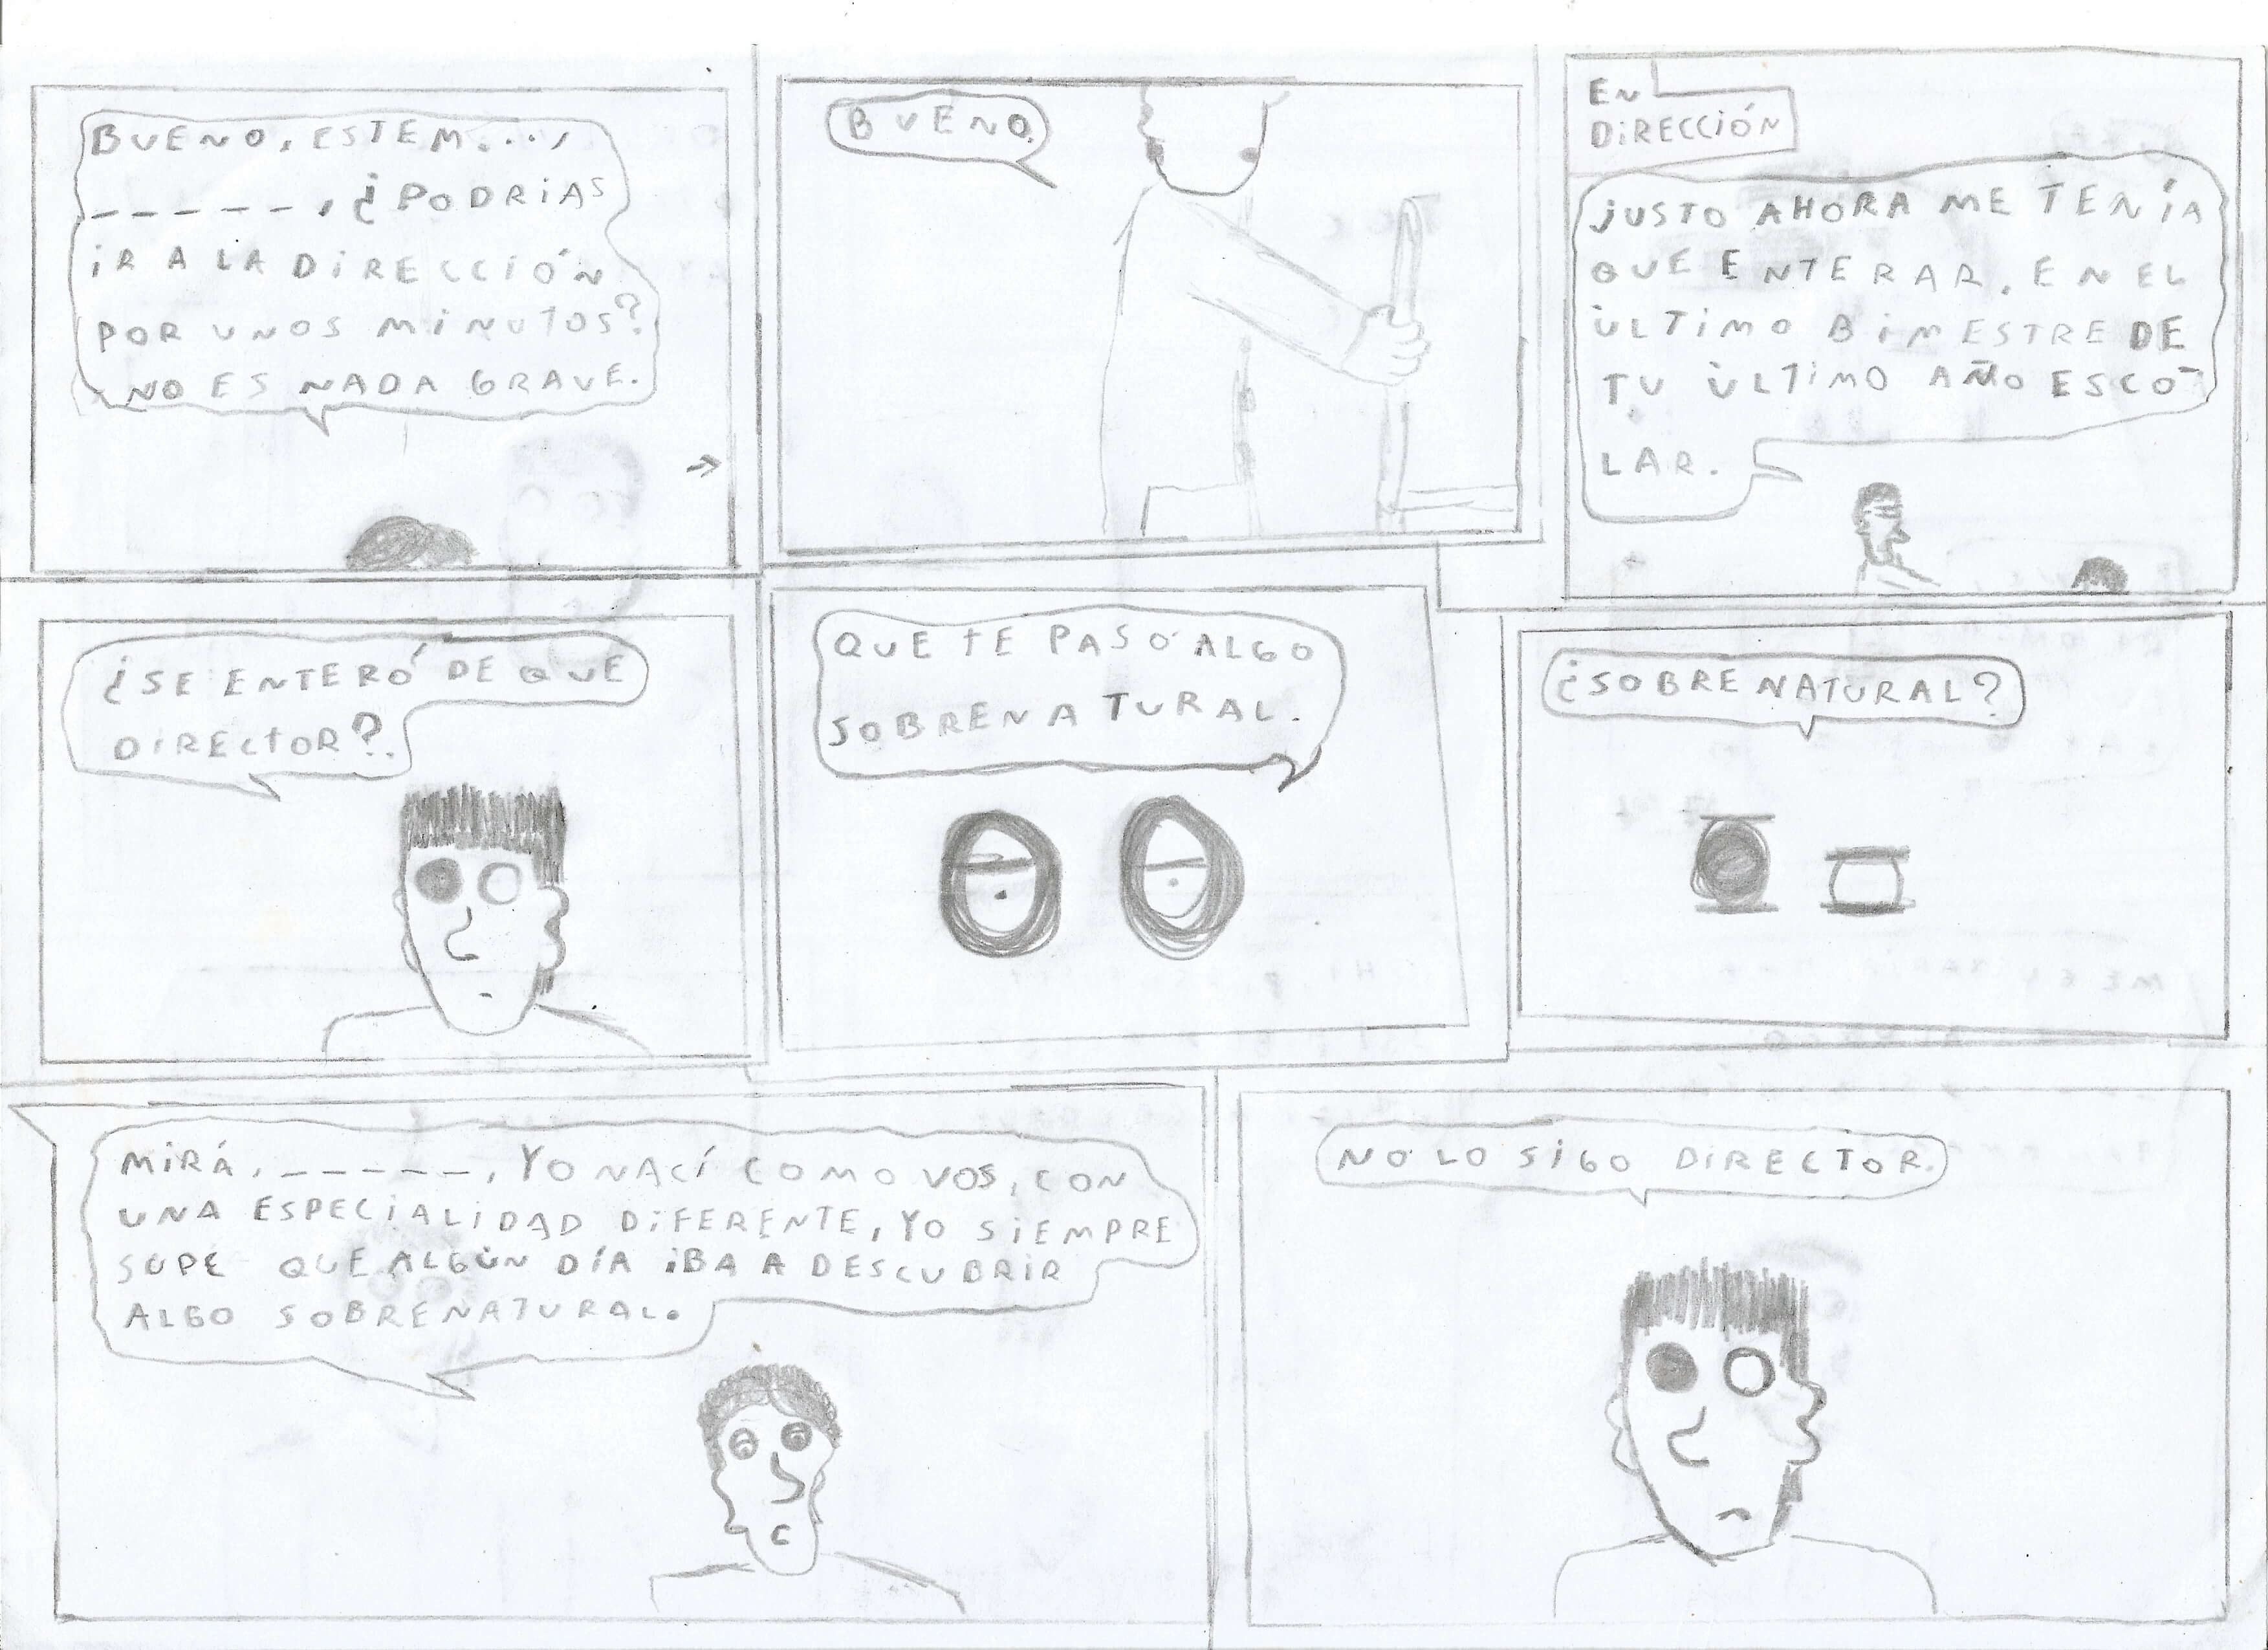 BUENO, ESTEM...,
_ _ _ _ _, ¿PODRIAS
IR A LA DIRECCIÓN
POR UNOS MINUTOS?
NO ES NADA GRAVE.
BUENO.
EN
DIRECCIÓN
JUSTO AHORA ME TENÍA
QUE ENTERAR, EN EL
ÚLTIMO BIMESTRE DE
TU ÚLTIMO AÑO ESCO-
LAR.
¿SE ENTERÓ DE QUE
DIRECTOR?.
QUE TE PASÓ ALGO
SOBRENATURAL.
¿SOBRENATURAL?
MIRÁ, _ _ _ _ _, YO NACÍ COMO VOS, CON
UNA ESPECIALIDAD DIFERENTE, YO SIEMPRE
SUPE QUE ALGÚN DÍA IBA A DESCUBRIR
ALGO SOBRENATURAL.
NO LO SIGO DIRECTOR.